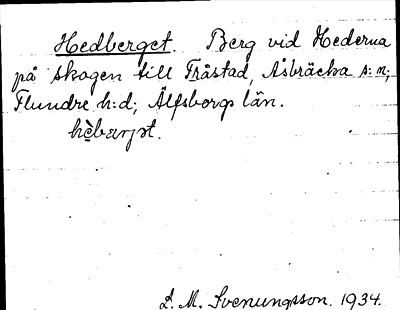 Hedberget. Berg vid Hederna
på skogen till Fråstad, Åsbräcka s:n;
Flundre h:d; Älfsborgs län.
hèbærjət.
S. M. Svenungsson. 1934.